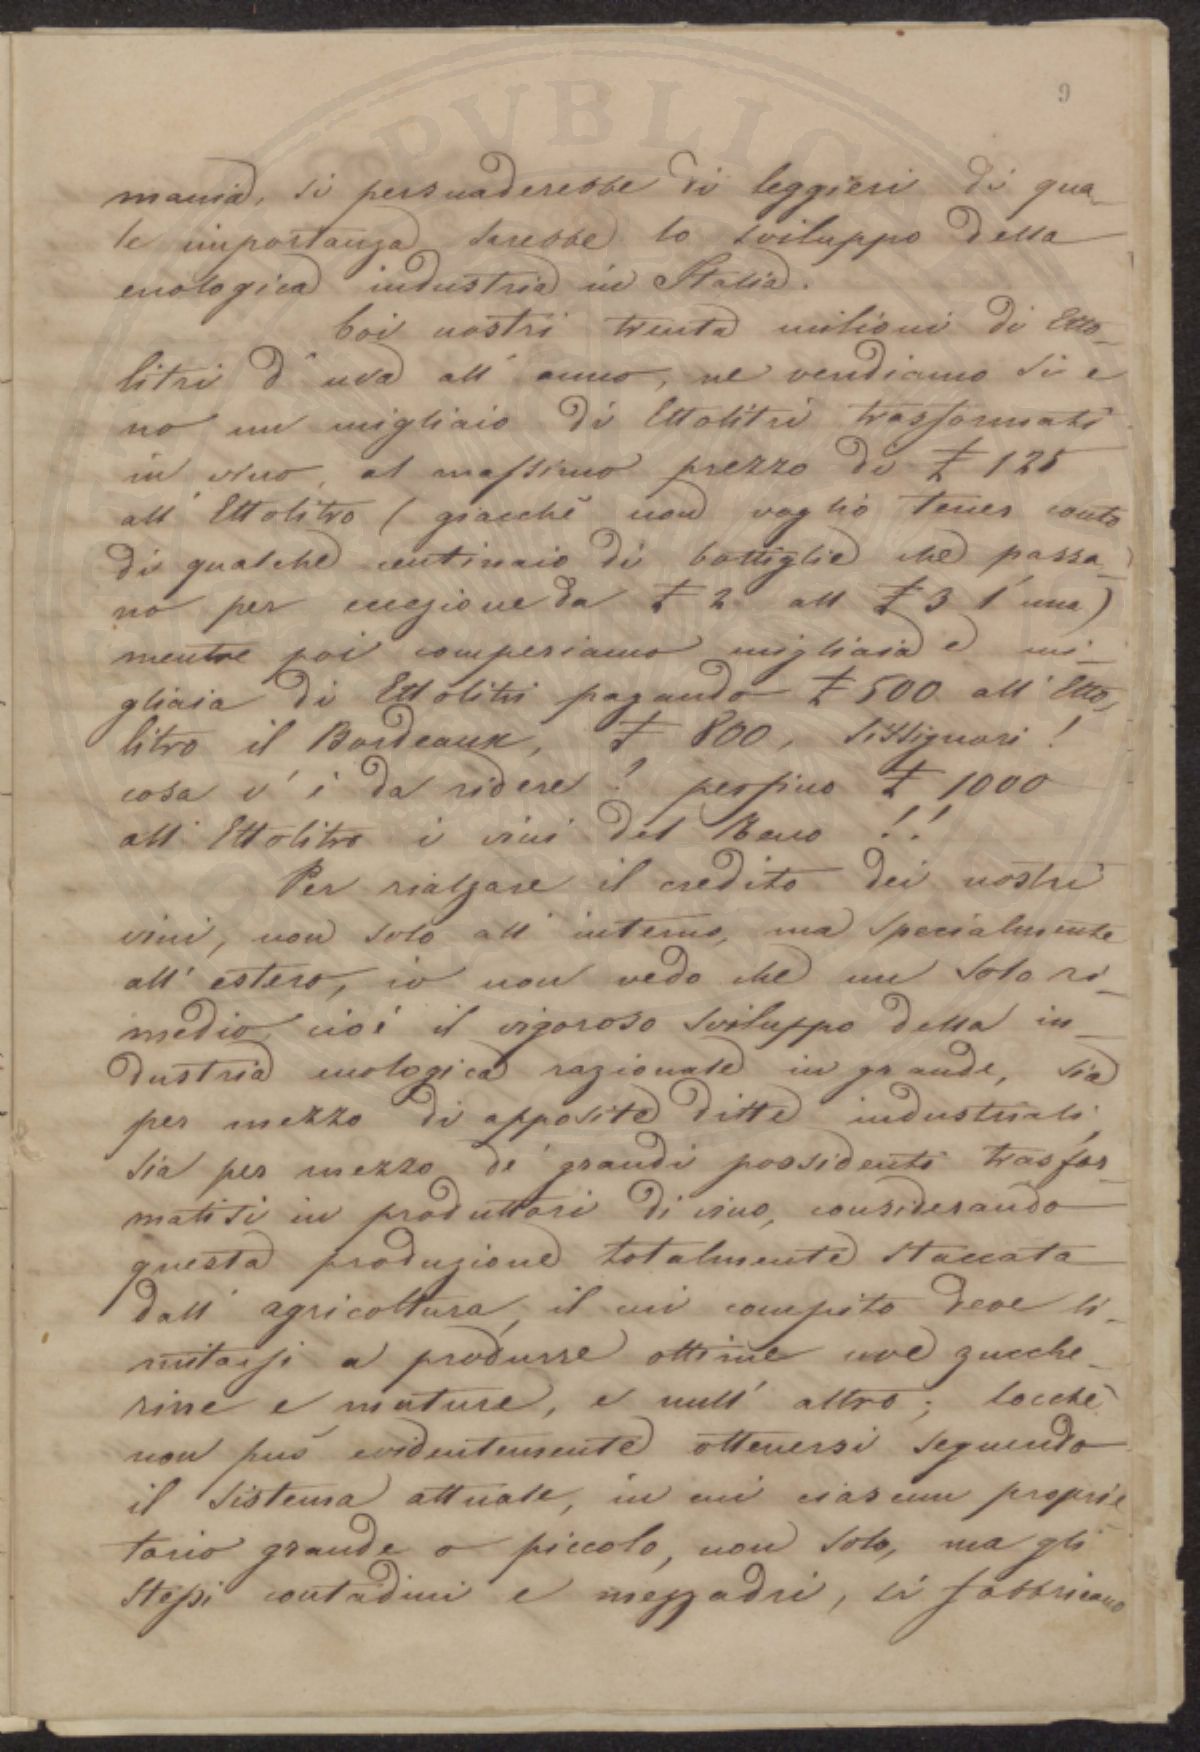 9
mania, si persuaderebbe di leggieri di qua-
le importanza sarebbe lo sviluppo della
enologica industria in Italia.
Coi nostri trenta milioni di Etto-
litri d'uva all'anno, ne vendiamo si e
no un migliaio di Ettolitri trasformati
in vino, al massimo prezzo di £ 125
all'Ettolitro (giacchè non voglio tener conto
di qualche centinaio di bottiglie che passa-
no per eccezione da £ 2 all £ 3 l'una)
mentre poi comperiamo migliaia e mi-
gliaia di Ettolitri pagando £ 500 all'Etto-
litro il Bordeaux, £ 800, sissignori!
cosa v'è da ridere? perfino £ 1000
all'Ettolitro i vini del Reno!!
Per rialzare il credito dei nostri
vini, non solo all'interno, ma specialmente
all'estero, io non vedo che un solo ri-
medio cioè il vigoroso sviluppo della in-
dustria enologica razionale in grande, sia
per mezzo di apposite ditte industriali,
sia per mezzo de' grandi possidenti trasfor-
matisi in produttori di vino, considerando
questa produzione totalmente staccata
dall'agricoltura, il cui compito deve li-
mitarsi a produrre ottime uve zucche-
rine e mature, e null'altro; locchè
non può evidentemente ottenersi seguendo
il sistema attuale, in cui ciascun proprie
tario grande o piccolo, non solo, ma gli
stessi contadini e mezzadri, si fabbricano
PVBLICVE